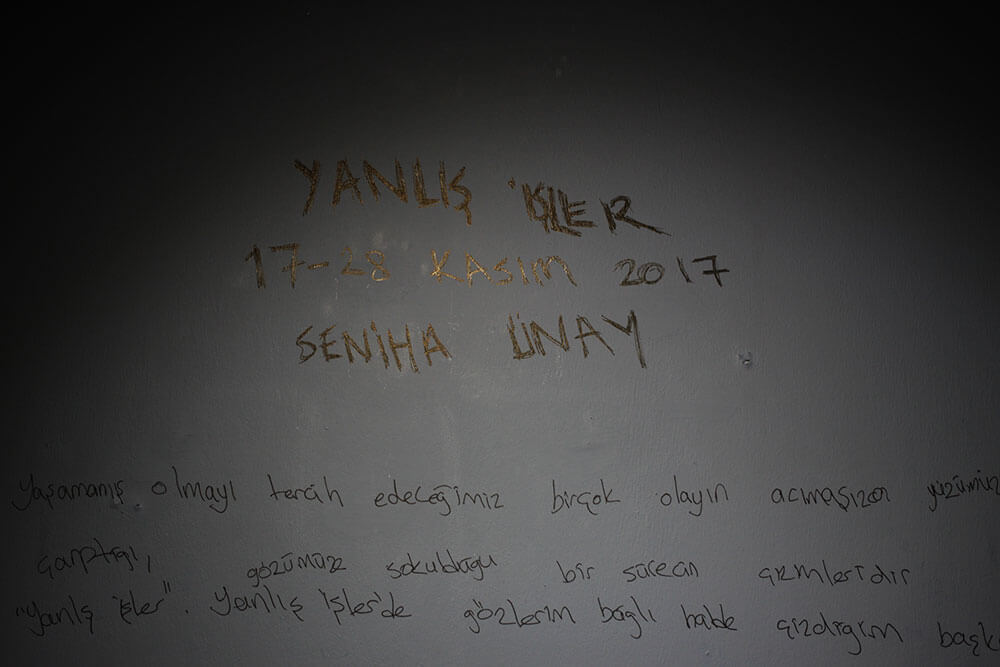 YANLIŞ İŞLER
17-28 KASIM 2017
SENİHA ÜNAY
Yaşamamış olmayı tercih edeceğimiz birçok olayın acımasızca yüzümüz
çarptığı, gözümüze sokulduğu bir sürecin çizimleridir
"Yanlış işler". Yanlış işler'de gözlerim bağlı halde çizdiğim başk